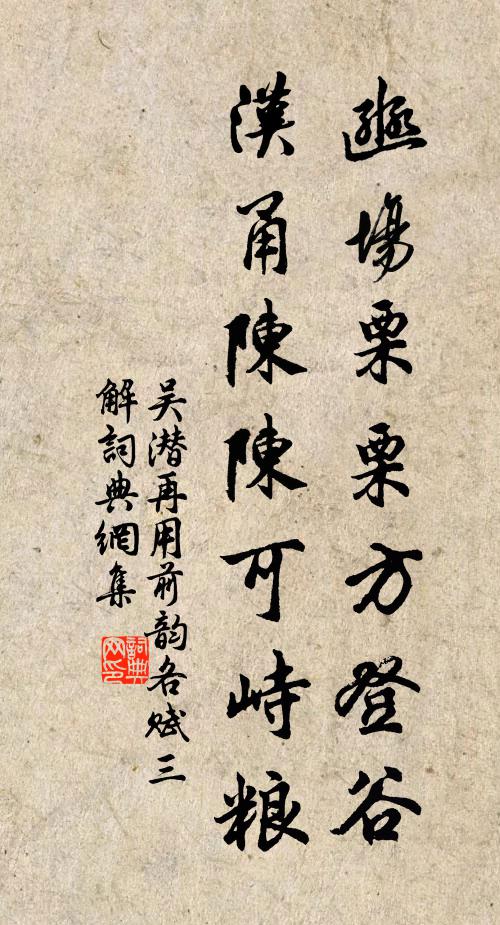 豳場栗栗方登谷
漢甬陳陳可峙粮
吴潜再用前韵各赋三
解詞典網集
詞典
网印